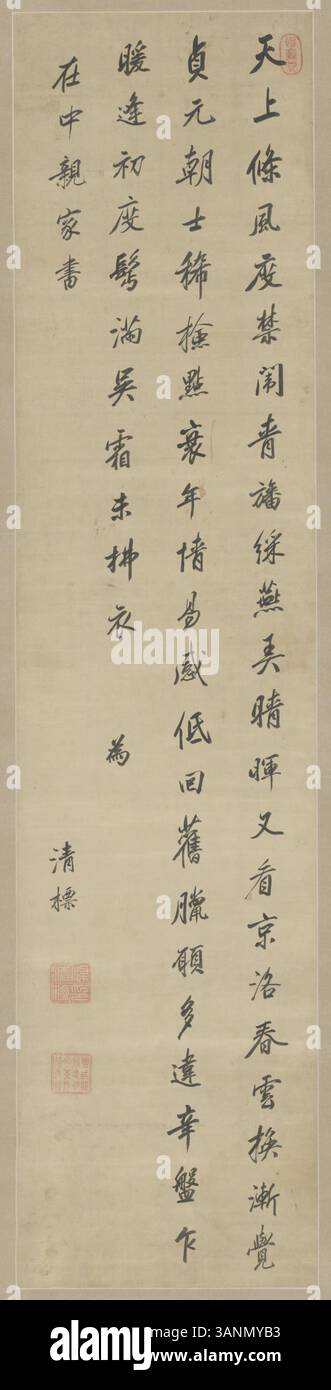 天上條風度禁闈青旛綵燕弄晴暉又看京洛春雲換漸覺
貞元朝士稀檢點衰年情易感低回舊臘願多違辛盤乍
暖逢初度鬢滿吳霜未拂衣 為
在中親家書
清標
alamy
Image ID: 3ANMYB3
www.alamy.com